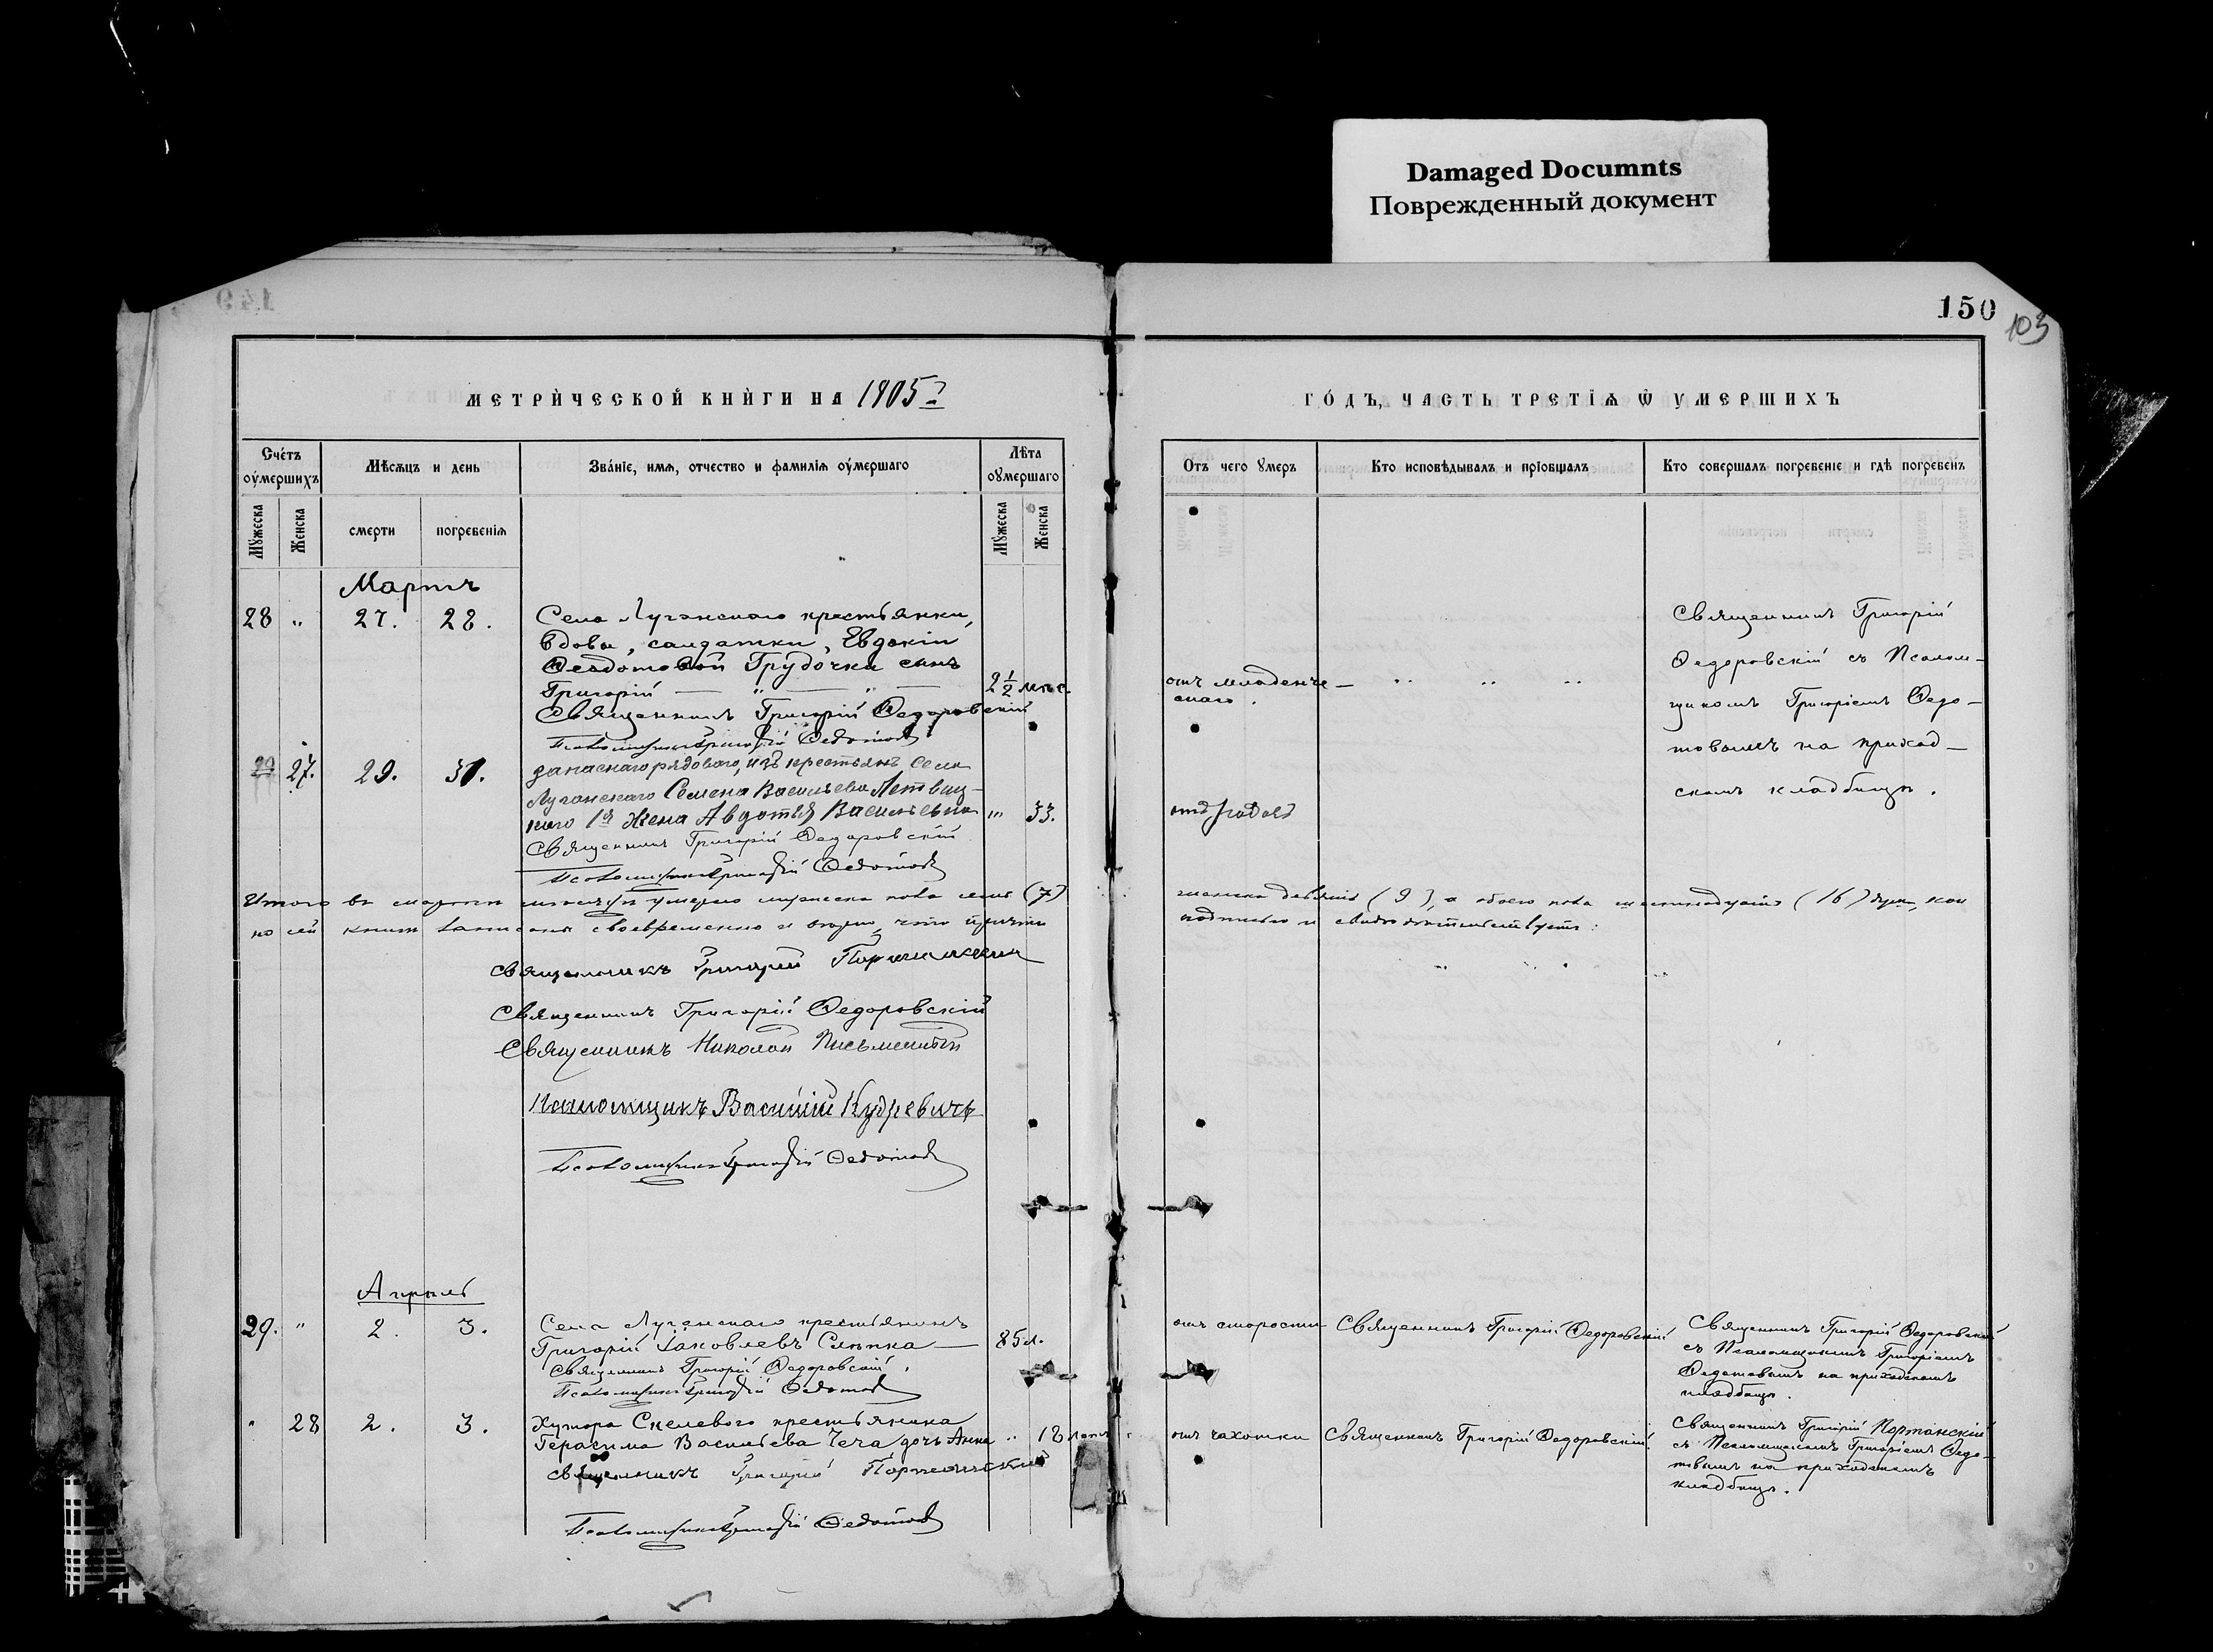 Damaged Documnts
Поврежденный документ
150
103
149
МЕТРИЧЕСКОЙ КНИГИ НА 1905 г
ГОДЪ, ЧАСТЬ ТРЕТІѦ Ѿ УМЕРШИХЪ
Счетъ оумершихъ
Мѣсѧцъ и день
Званіе, имѧ, отчество и фамиліѧ оумершаго
Лѣта оумершаго
Отъ чего умеръ
Кто исповѣдывалъ и пріобщалъ
Кто совершалъ погребеніе и гдѣ погребенъ
Мужеска
Женска
смерти
погребеніѧ
Мужеска
Женска
Мартъ
28 " 27. 28.
Села Луганскаго крестьянки,
вдовы, салдатки, Евдокіи
Ѳеодотовой Грудочки сынъ
Григорій — " — " —
2 1/2 мѣс.
Священникъ Григорій Ѳедоровскій
Псаломщикъ Григорій Ѳедотовъ
отъ младенче-
скаго.
Священникъ Григорій
Ѳедоровскій съ Псалом-
щикомъ Григоріемъ Ѳедо-
товымъ на приход-
скомъ кладбищѣ.
29 27. 29. 31.
запаснаго рядоваго, изъ крестьянъ села
Луганскаго Семена Васильева
1я жена Авдотья Васильевна " 33.
Священникъ Григорій Ѳедоровскій
Псаломщикъ Григорій Ѳедотовъ
отъ родовъ
Итого въ мартѣ мѣсяцѣ умерло мужеска пола семь (7)
женска девять (9), а обоего пола шестнадцать (16) душ, кои
по сей книгѣ записаны своевременно и вѣрно, что причтъ
подписью и свидѣтельствуетъ:
Священникъ Григорій Портанскій
Священникъ Григорій Ѳедоровскій
Священникъ Николай Письменный
Псаломщикъ Василій Кудревичъ
Псаломщикъ Григорій Ѳедотовъ
Апрѣль
29. " 2. 3.
Села Луганскаго крестьянинъ
Григорій Іаковлевъ Слѣпка —
85 л.
Священникъ Григорій Ѳедоровскій.
Псаломщикъ Григорій Ѳедотовъ
отъ старости
Священникъ Григорій Ѳедоровскій
Священникъ Григорій Ѳедоровскій
съ Псаломщикомъ Григоріемъ
Ѳедотовымъ на приходскомъ
кладбищѣ.
" 28 2. 3.
Хутора Скелевого крестьянина
Герасима Васильева Чеча дочь Анна " 18 лѣтъ
Священникъ Григорій Портанскій
Псаломщикъ Григорій Ѳедотовъ
отъ чахотки
Священникъ Григорій Ѳедоровскій.
Священникъ Григорій Портанскій
съ Псаломщикомъ Григоріемъ Ѳедо-
товымъ на приходскомъ
кладбищѣ.